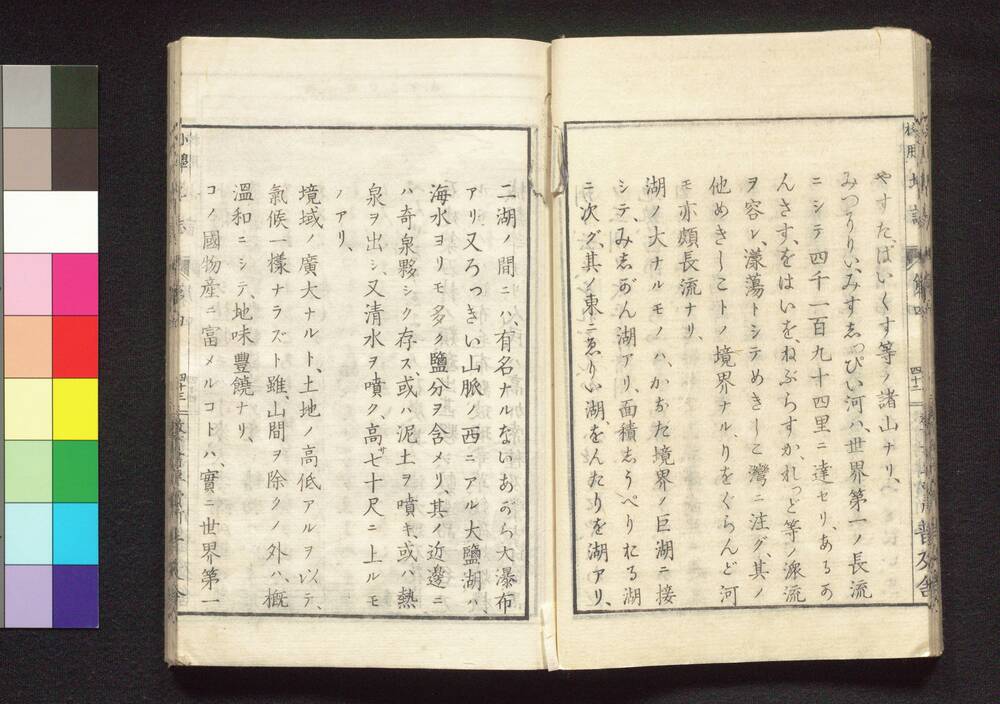 やすた、ばいくす等ノ諸山ナリ、
みつうりい、みすゑっぴい河ハ、世界第一ノ長流
ニシテ四千一百九十四里ニ達セリ、あるの
んさす、をはいを、ねぶらすか、れっど等ノ派流
ヲ容レ、漾蕩トシテめきしこ灣ニ注グ、其ノ
他めきしこトノ境界ナル、りをぐらんど河
モ亦頗長流ナリ、
湖ノ大ナルモノハ、かなた境界ノ巨湖ニ接
シテ、みしがん湖アリ、面積しうぺりおる湖
ニ次グ、其ノ東ニゑりい湖、をんたりを湖アリ、
二湖ノ間ニハ、有名ナルないあがら大瀑布
アリ又ろっきい山脈ノ西ニアル大鹽湖ハ、
海水ヨリモ多ク鹽分ヲ含メリ、其ノ近邊ニ
ハ奇泉夥シク存ス、或ハ泥土ヲ噴キ、或ハ熱
泉ヲ出シ、又清水ヲ噴ク高サ七十尺ニ上ルモ
ノアリ、
境域ノ廣大ナルト、土地ノ高低アルヲ以テ、
氣候一樣ナラズト雖、山間ヲ除クノ外ハ、概
溫和ニシテ、地味豐饒ナリ、
コノ國物產ニ富メルコトハ、實ニ世界第一
小學
四十三